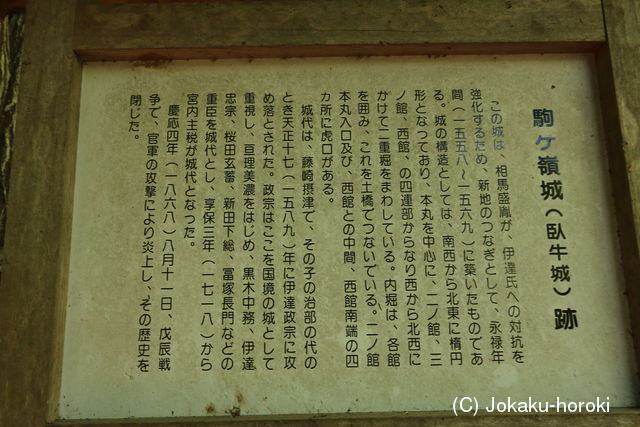 駒ケ嶺城(臥牛城)跡
この城は、相馬盛胤が、伊達氏への対抗を
強化するため、新地のつなぎとして、永禄年
間(一五五八〜一五六九)に築いたものであ
る。城の構造としては、南西から北東に楕円
形となっており、本丸を中心に、二ノ館、三
ノ館、西館、の四連部からなり西から北西に
かけて二重堀をまわしている。内堀は、各館
を囲み、これを土橋でつないでいる。二ノ館
本丸入口及び、西館との中間、西館南端の四
カ所に虎口がある。
城代は、藤崎摂津で、その子の治部の代の
とき天正十七(一五八九)年に伊達政宗に攻
め落とされた。政宗はここを国境の城として
重視し、亘理美濃をはじめ、黒木中務、伊達
忠宗、桜田玄蕃、新田下総、冨塚長門などの
重臣を城代とし、享保三年(一七一八)から
宮内主税が城代となった。
慶応四年(一八六八)八月十一日、戊辰戦
争で、官軍の攻撃により炎上し、その歴史を
閉じた。
(C) Jokaku-horoki